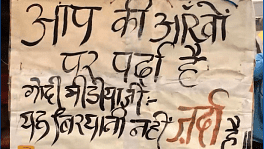 आप की आँखों
पर पर्दा है
गोदी मीडियाजी:-
यह बिरयानी नहीं ज़र्दा है